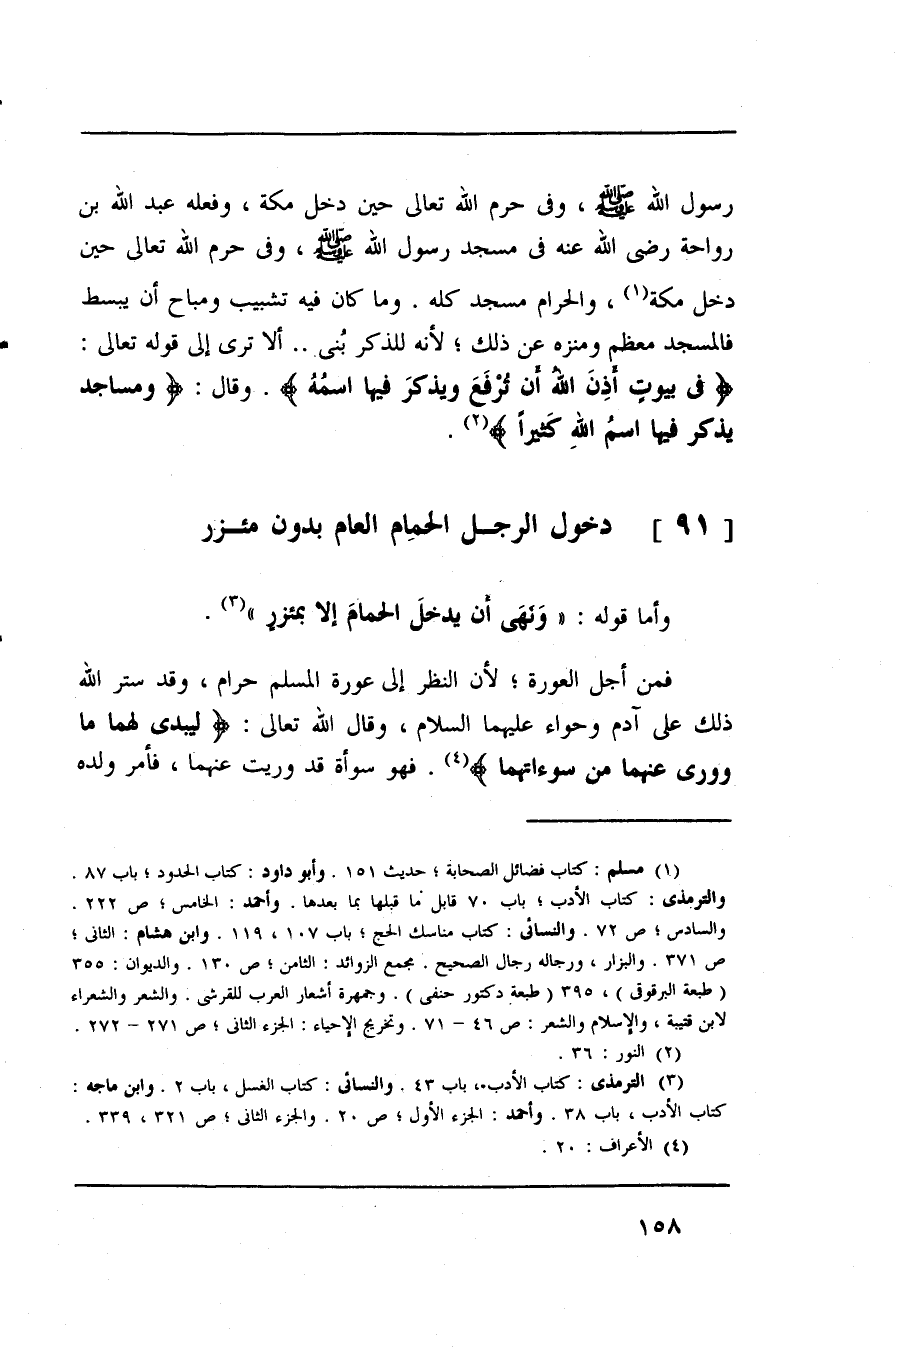 رسول الله ﷺ ، وفى حرم الله تعالى حين دخل مكة ، وفعله عبد الله بن
رواحة رضى الله عنه فى مسجد رسول الله ﷺ ، وفى حرم الله تعالى حين
دخل مكة(١) ، والحرام مسجد كله . وما كان فيه تشبيب ومباح أن يبسط
فالمسجد معظم ومنزه عن ذلك ؛ لأنه للذكر بُنى .. ألا ترى إلى قوله تعالى :
﴿ فى بيوتٍ أَذِنَ اللهُ أَن تُرْفَعَ ويذكرَ فيها اسمُهُ ﴾ . وقال : ﴿ ومساجد
يذكر فيها اسمُ اللهِ كَثيراً ﴾(٢) .
[ ٩١ ] دخول الرجــل الحمام العام بدون مئــزر
وأما قوله : « وَنَهَى أَن يدخلَ الحمامَ إلا بمئزرٍ »(٣) .
فمن أجل العورة ؛ لأن النظر إلى عورة المسلم حرام ، وقد ستر الله
ذلك على آدم وحواء عليهما السلام ، وقال الله تعالى : ﴿ ليبدى لهما ما
وورى عنهما من سوءاتهما ﴾(٤) . فهو سوأة قد وريت عنهما ، فأمر ولده
(١) مسلم : كتاب فضائل الصحابة ؛ حديث ١٥١ . وأبو داود : كتاب الحدود ؛ باب ٨٧ .
والترمذى : كتاب الأدب ؛ باب ٧٠ قابل ما قبلها بما بعدها . وأحمد : الخامس ؛ ص ٢٢٢ .
والسادس ؛ ص ٧٢ . والنسائى : كتاب مناسك الحج ؛ باب ١٠٧ ، ١١٩ . وابن هشام : الثانى ؛
ص ٣٧١ . والبزار ، ورجاله رجال الصحيح . مجمع الزوائد : الثامن ؛ ص ١٣٠ . والديوان : ٣٥٥
( طبعة البرقوقى ) ، ٣٩٥ ( طبعة دكتور حنفى ) . وجمهرة أشعار العرب للقرشى . والشعر والشعراء
لابن قتيبة ، والإسلام والشعر : ص ٤٦ – ٧١ . وتخريج الإحياء : الجزء الثانى ؛ ص ٢٧١ – ٢٧٢ .
(٢) النور : ٣٦ .
(٣) الترمذى : كتاب الأدب ، باب ٤٣ . والنسائى : كتاب الغسل ، باب ٢ . وابن ماجه :
كتاب الأدب ، باب ٣٨ . وأحمد : الجزء الأول ؛ ص ٢٠ . والجزء الثانى ؛ ص ٣٢١ ، ٣٣٩ .
(٤) الأعراف : ٢٠ .
١٥٨